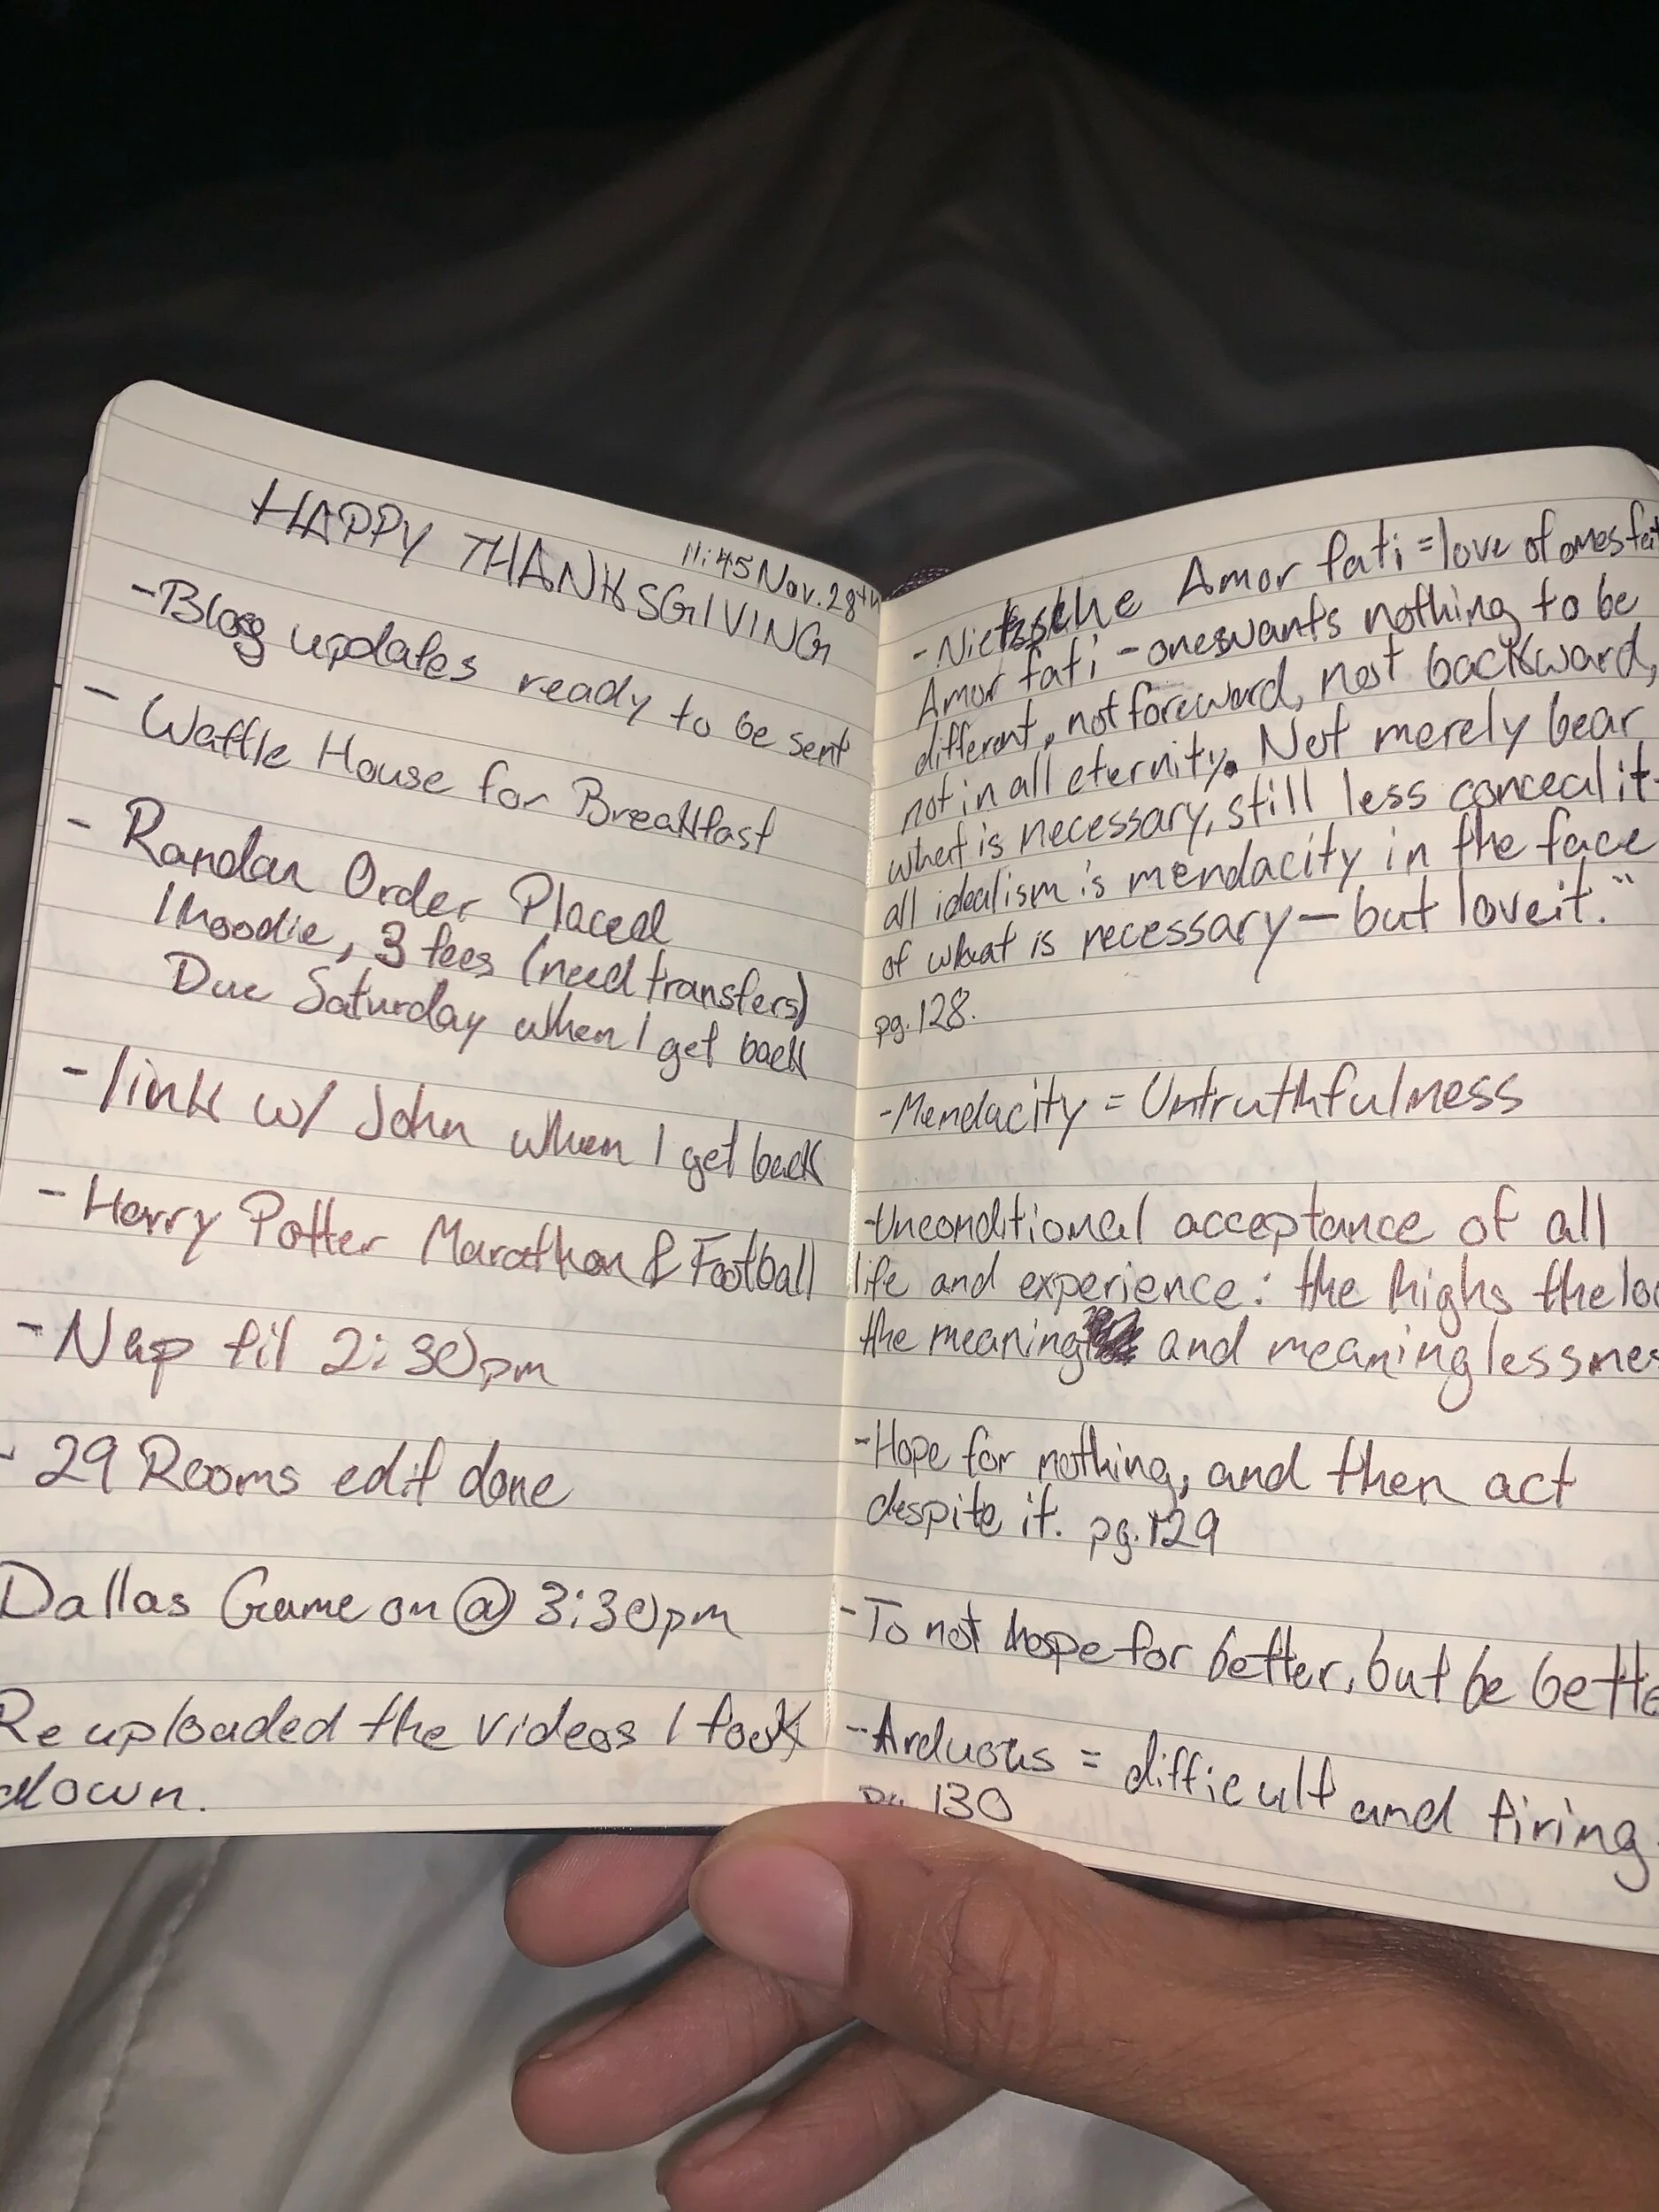 11:45 Nov. 28th
HAPPY THANKSGIVING
- Blog updates ready to be sent
- Waffle House for Breakfast
- Order Placed
1 Hoodie, 3 tees (need transfers)
Due Saturday when I get back
- link w/ John when I get back
- Harry Potter Marathon & Football
- Nap til 2:30pm
- 29 Rooms edit done
Dallas Game on @ 3:30pm
Re uploaded the videos I took
down.
- Nietzsche Amor fati = love of ones fat
Amor fati - one wants nothing to be
different, not foreward, not backward,
not in all eternity. Not merely bear
what is necessary, still less conceal it-
all idealism is mendacity in the face
of what is necessary — but love it."
pg. 128.
- Mendacity = Untruthfulness
- Unconditional acceptance of all
life and experience: the highs the lo
the meaning and meaninglessnes
- Hope for nothing, and then act
despite it. pg. 129
- To not hope for better, but be bette
- Arduous = difficult and tiring.
pg. 130